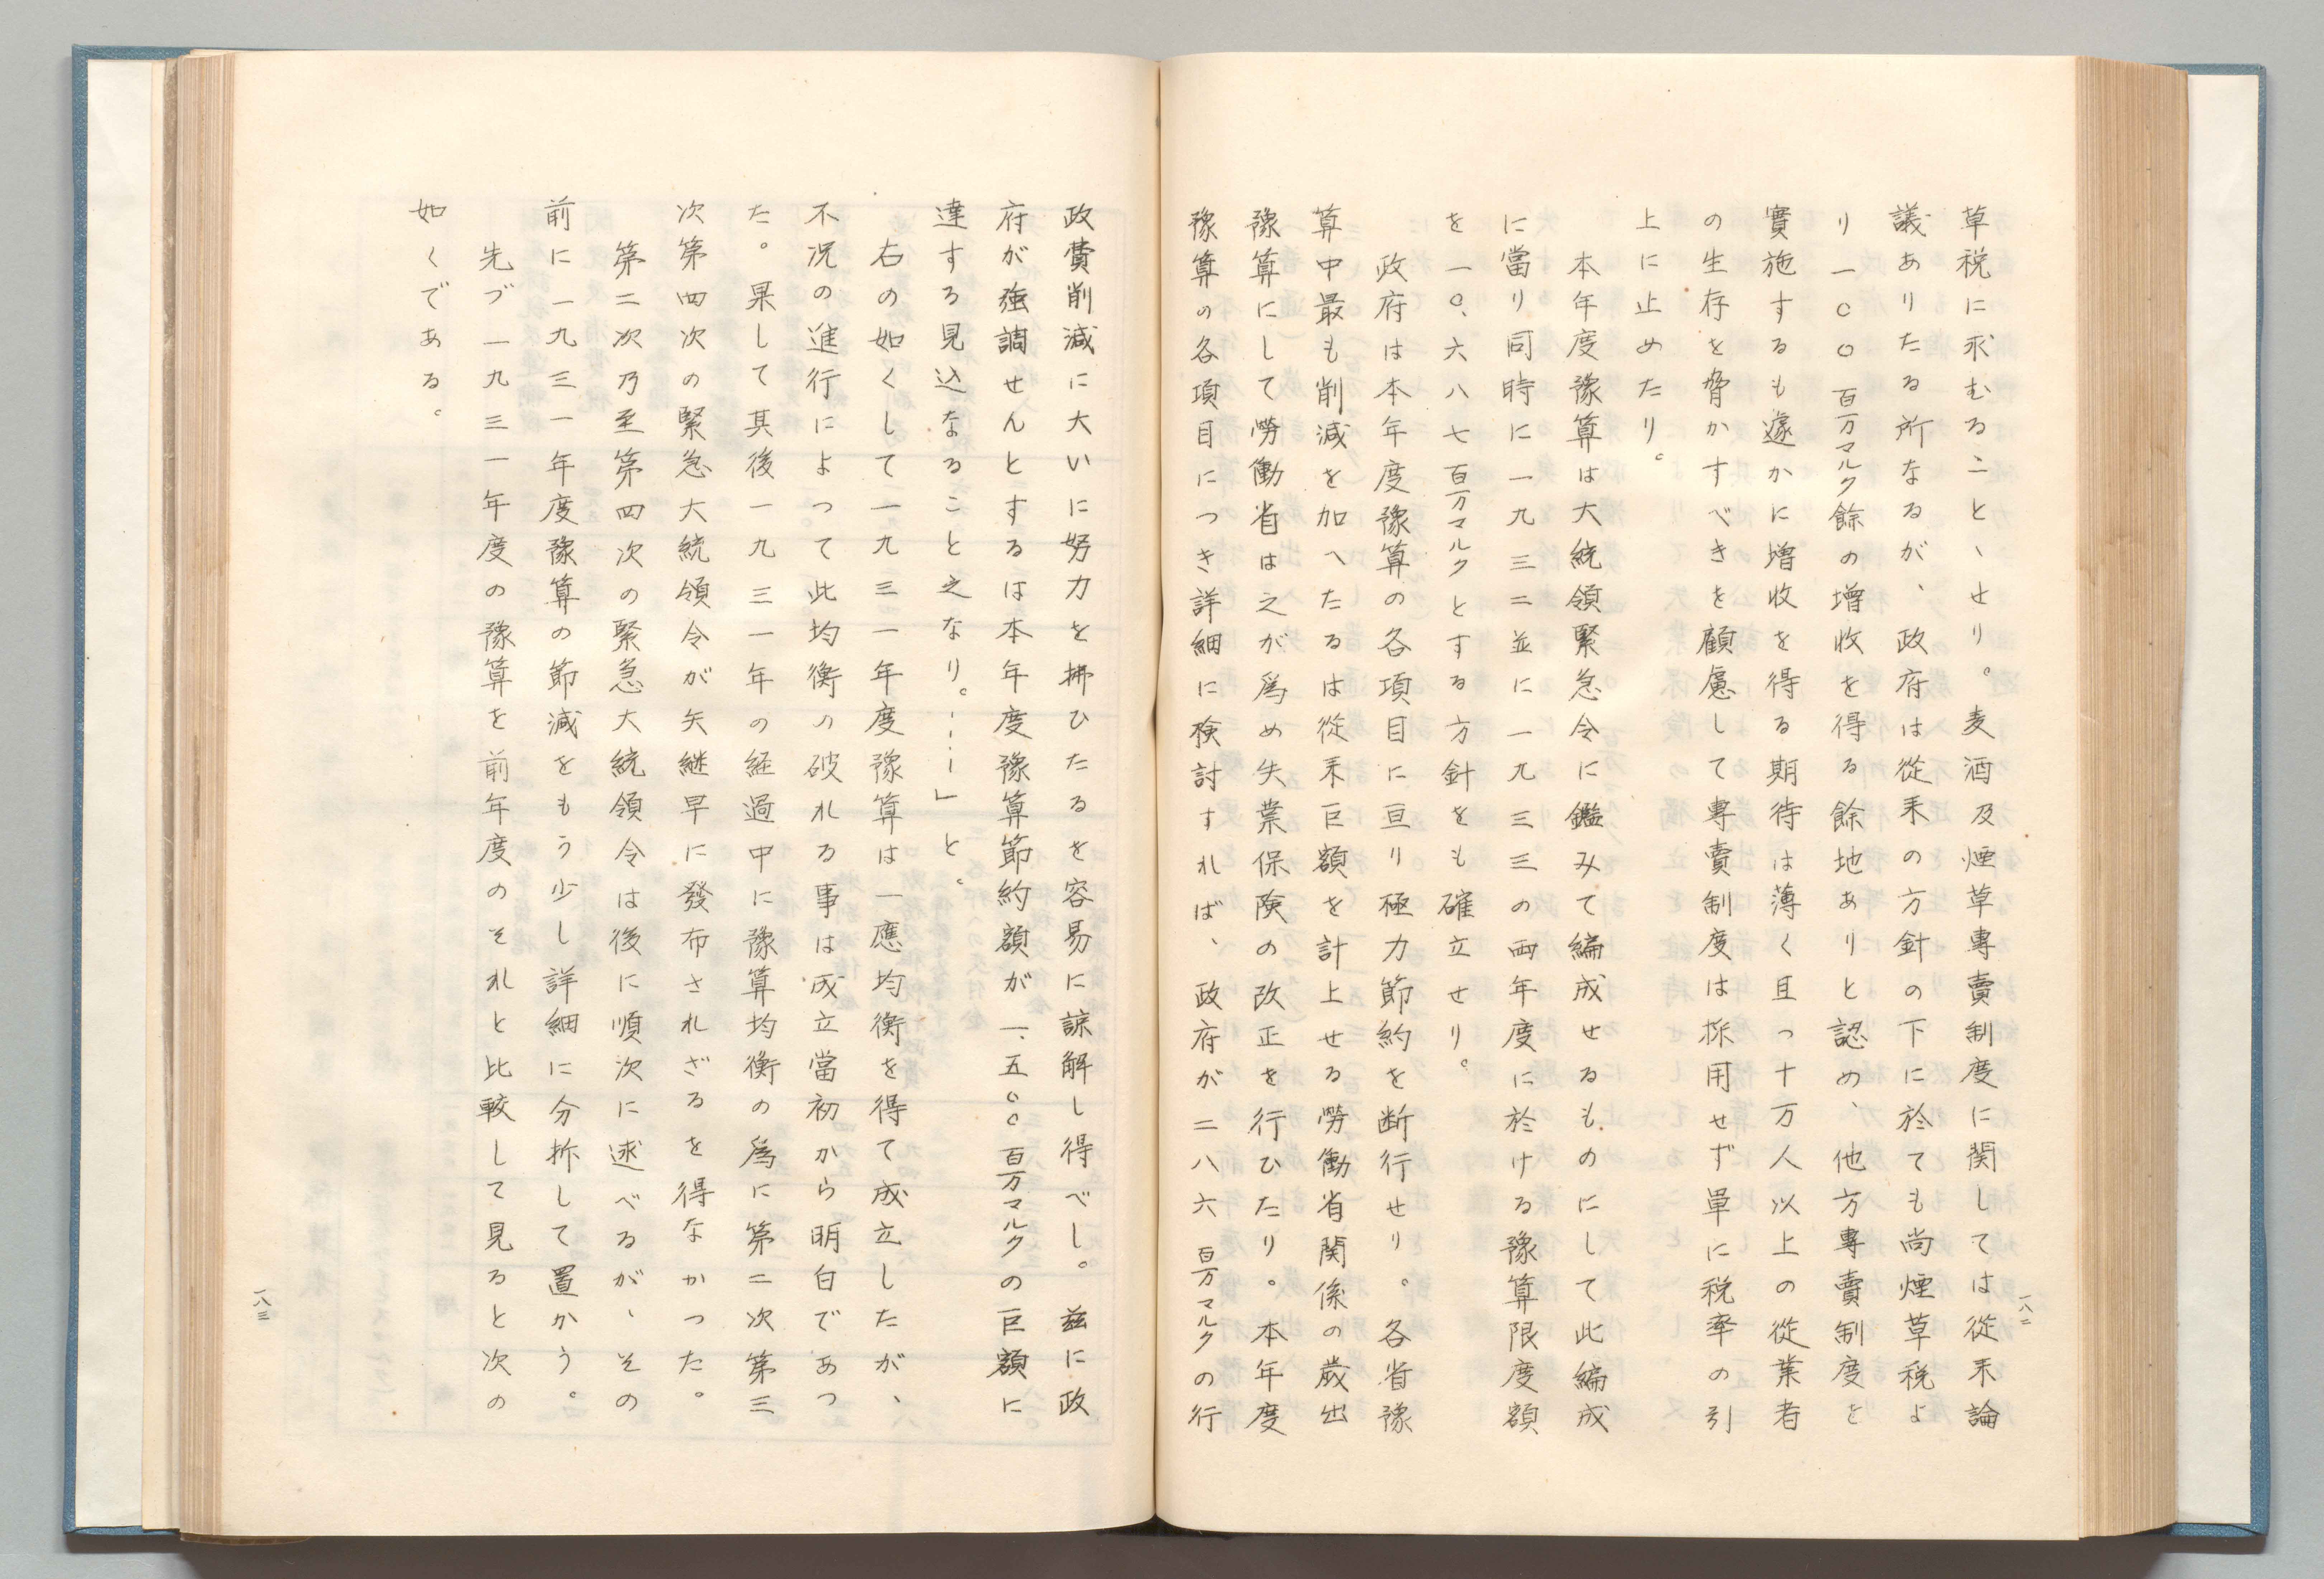 草税に求むること丶せり。麦酒及煙草專賣制度に関しては従来論
議ありたる所なるが、政府は従来の方針の下に於ても尚煙草税よ
り一〇〇百万マルク餘の増收を得る餘地ありと認め、他方專賣制度を
實施するも遽かに増收を得る期待は薄く且つ十万人以上の従業者
の生存を脅かすべきを顧慮して專賣制度は採用せず單に税率の引
上に止めたり。
本年度豫算は大統領緊急令に鑑みて編成せるものにして此編成
に當り同時に一九三二並に一九三三の両年度に於ける豫算限度額
を一〇、六八七百万マルクとする方針をも確立せり。
政府は本年度豫算の各項目に亘り極力節約を断行せり。各省豫
算中最も削減を加へたるは従来巨額を計上せる勞働省関係の歳出
豫算にして勞働省は之が為め失業保険の改正を行ひたり。本年度
豫算の各項目につき詳細に検討すれば、政府が二八六百万マルクの行
一八二
政費削減に大いに努力を拂ひたるを容易に諒解し得べし。茲に政
府が強調せんとするは本年度豫算節約額が一、五〇〇百万マルクの巨額に
達する見込なること之なり。……」と。
右の如くして一九三一年度豫算は一應均衡を得て成立したが、
不況の進行によって此均衡の破れる事は成立當初から明白であっ
た。果して其後一九三一年の経過中に豫算均衡の為に第二次第三
次第四次の緊急大統領令が矢継早に發布されざるを得なかった。
第二次乃至第四次の緊急大統領令は後に順次に述べるが、その
前に一九三一年度豫算の節減をもう少し詳細に分拆して置かう。
先づ一九三一年度の豫算を前年度のそれと比較して見ると次の
如くである。
一八三